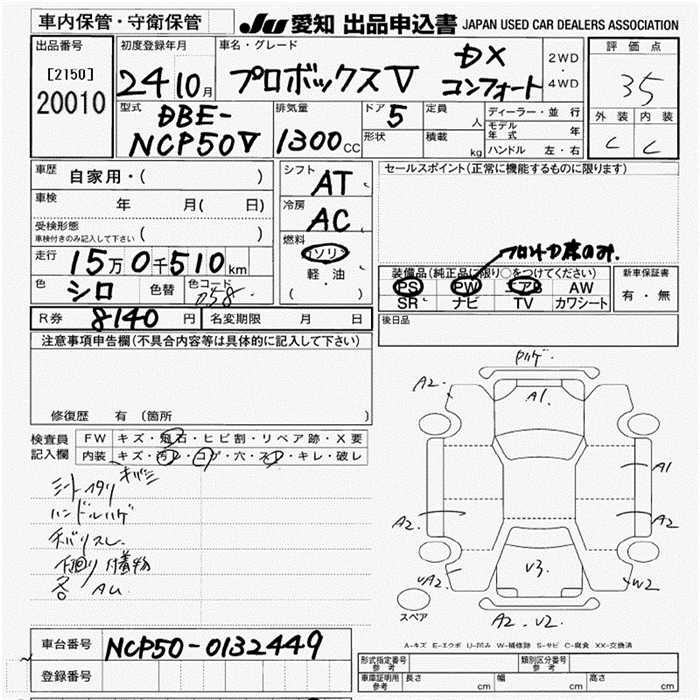 車内保管・守衛保管
JU 愛知 出品申込書 JAPAN USED CAR DEALERS ASSOCIATION
出品番号
[2150]
20010
初度登録年月
24 10月
車名・グレード
プロボックスV
DX
コンフォート
2WD
・
4WD
評価点
35
外装 内装
C C
型式
DBE-
NCP50V
排気量
1300CC
ドア
5
形状
定員
人
積載
kg
ディーラー・並行
モデル年式 年
ハンドル 左・右
車歴
自家用・( )
車検
年 月( 日)
受検形態
車検付きのみ記入して下さい ( )
走行
15万0千510km
色
シロ
色替
色コード
058
シフト
AT
冷房
AC
燃料
ガソリン
・
軽・油
( )
セールスポイント(正常に機能するものに限ります)
フロントD席のみ.
装備品(純正品に限り○をつけてください)
PS PW エアB AW
SR ナビ TV カワシート
新車保証書
有・無
R券 8140 円
名変期限 月 日
後日品
注意事項申告欄(不具合内容等は具体的に記入して下さい)
修復歴 有 (箇所 )
検査員
記入欄
FW キズ・飛石・ヒビ割・リペア跡・X要
内装 キズ・汚レ・コゲ・穴・スレ・キレ・破レ
キバミ
シートヘタリ
ハンドルハゲ
チバリスレ
下廻り 付着物
各 AU
ロゲ
A2
A1
A1
A2
A2
A2
V3
W2
A2 V2
スペア
A-キズ E-エクボ U-凹み W-補修跡 S-サビ C-腐食 XX-交換済
車台番号 NCP50-0132449
登録番号
形式指定番号
参考
類別区分番号
参考
車庫証明用
参考
長さ cm
幅 cm
高さ cm